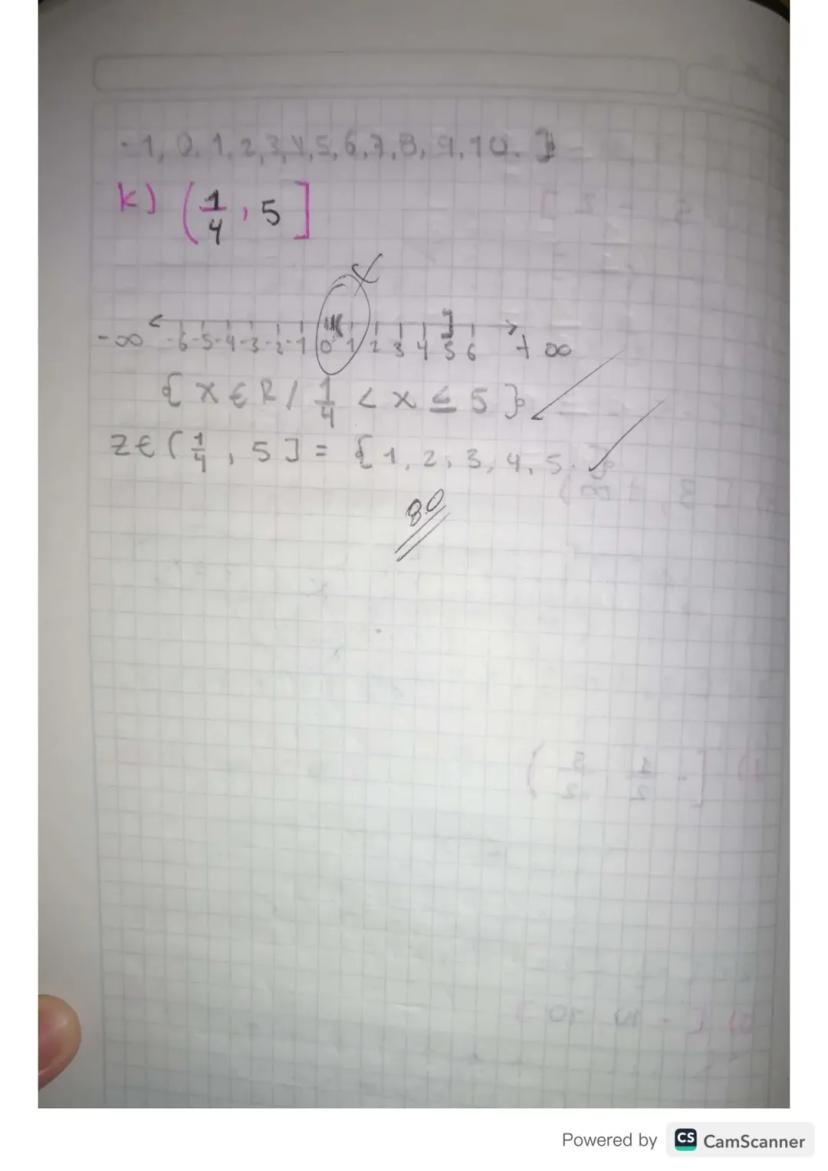 -1, 0, 1, 2, 3, 4, 5, 6, 7, 8, 9, 10. }
k) (1/4, 5]
-∞ -6 -5 -4 -3 -2 -1 0 1 2 3 4 5 6 +∞
{ x ∈ R / 1/4 < x ≤ 5 }
Z ∈ (1/4, 5] = {1, 2, 3, 4, 5. }
80
Powered by CS CamScanner